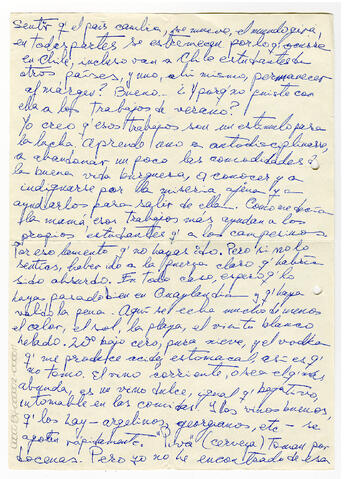 sentir q' el país cambia, se mueve, el mundo gira,
en todas partes se estremecen por lo q' ocurre
en Chile, incluso van a Chile estudiantes de
otros países, y uno, ahí mismo, permanecer
al margen? Bueno... ¿Y por q' no fuiste con
ella a los trabajos de verano?
Yo creo q' esos trabajos son un estímulo para
la lucha. Aprende uno a autodisciplinarse,
a abandonar un poco las comodidades y
la buena vida burguesa, a conocer y a
indignarse por la miseria ajena y a
ayudarlos para salir de ella. Como me decía
la mamá, esos trabajos más ayudan a los
propios estudiantes q' a los campesinos
Por eso lamento q' no hayas ido. Pero si no lo
sentías, haber ido a la fuerza claro q' habría
sido absurdo. En todo caso, espero q' lo
hayas pasado bien en y q' haya
valido la pena. Aquí se echa mucho de menos
el calor, el sol, la playa, el vinito blanco
helado. 20° bajo cero, pura nieve, y el vodka
q' me produce acidez estomacal, así es q'
no tomo. El vino corriente, o sea el q' más
abunda, es un vino dulce, y bajativo,
intomable en las comidas. Los vinos buenos,
q' los hay – argelinos, georgianos, etc – se
agotan rápidamente. "Piva" (cerveza) toman por
docenas. Pero yo no he encontrado de esa